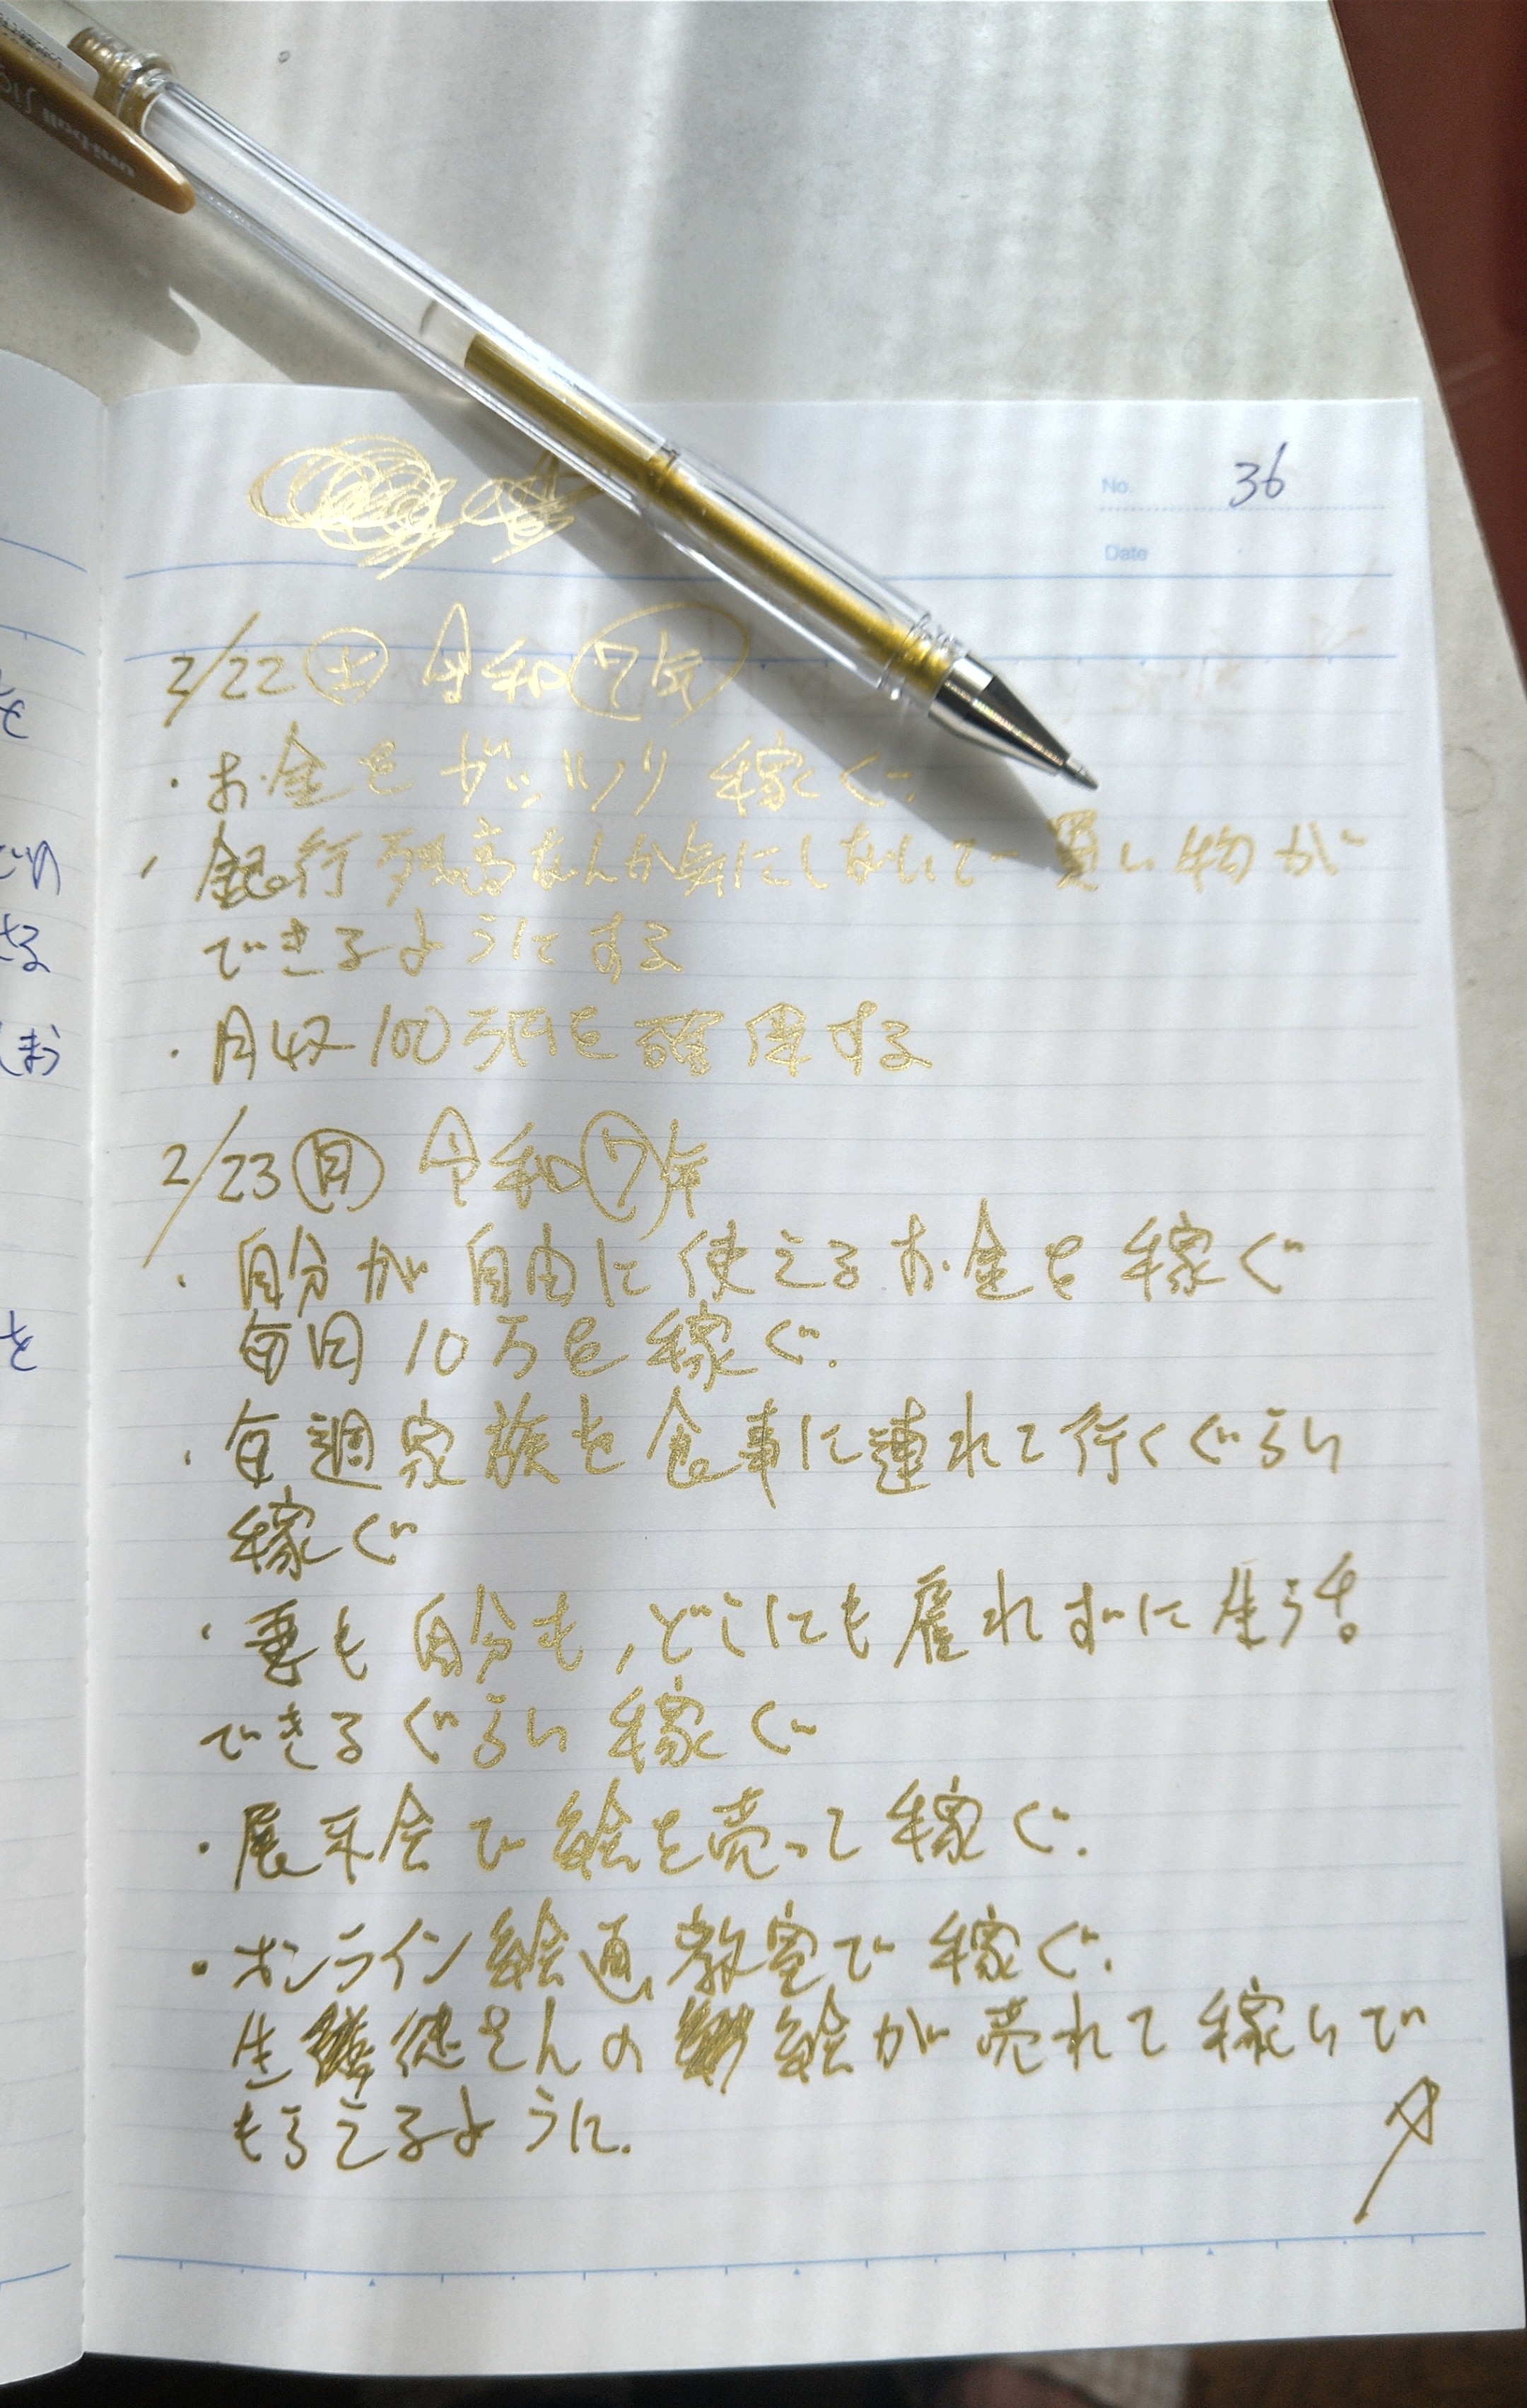 uni-ball sig
No. 36
Date
2/22 (土) 令和7年
・お金をガッツリ稼ぐ.
・銀行残高なんか気にしないで買い物が
できるようにする
・月収100万円を確保する
2/23 (月) 令和7年
・自分が自由に使えるお金を稼ぐ
毎回10万を稼ぐ.
・毎週家族を食事に連れて行くぐらい
稼ぐ
・妻も自分も,どこにも雇れずに生活
できるぐらい稼ぐ
・展示会で絵を売って稼ぐ.
・オンライン絵画教室で稼ぐ.
生徒さんの絵が売れて稼いで
もらえるように.